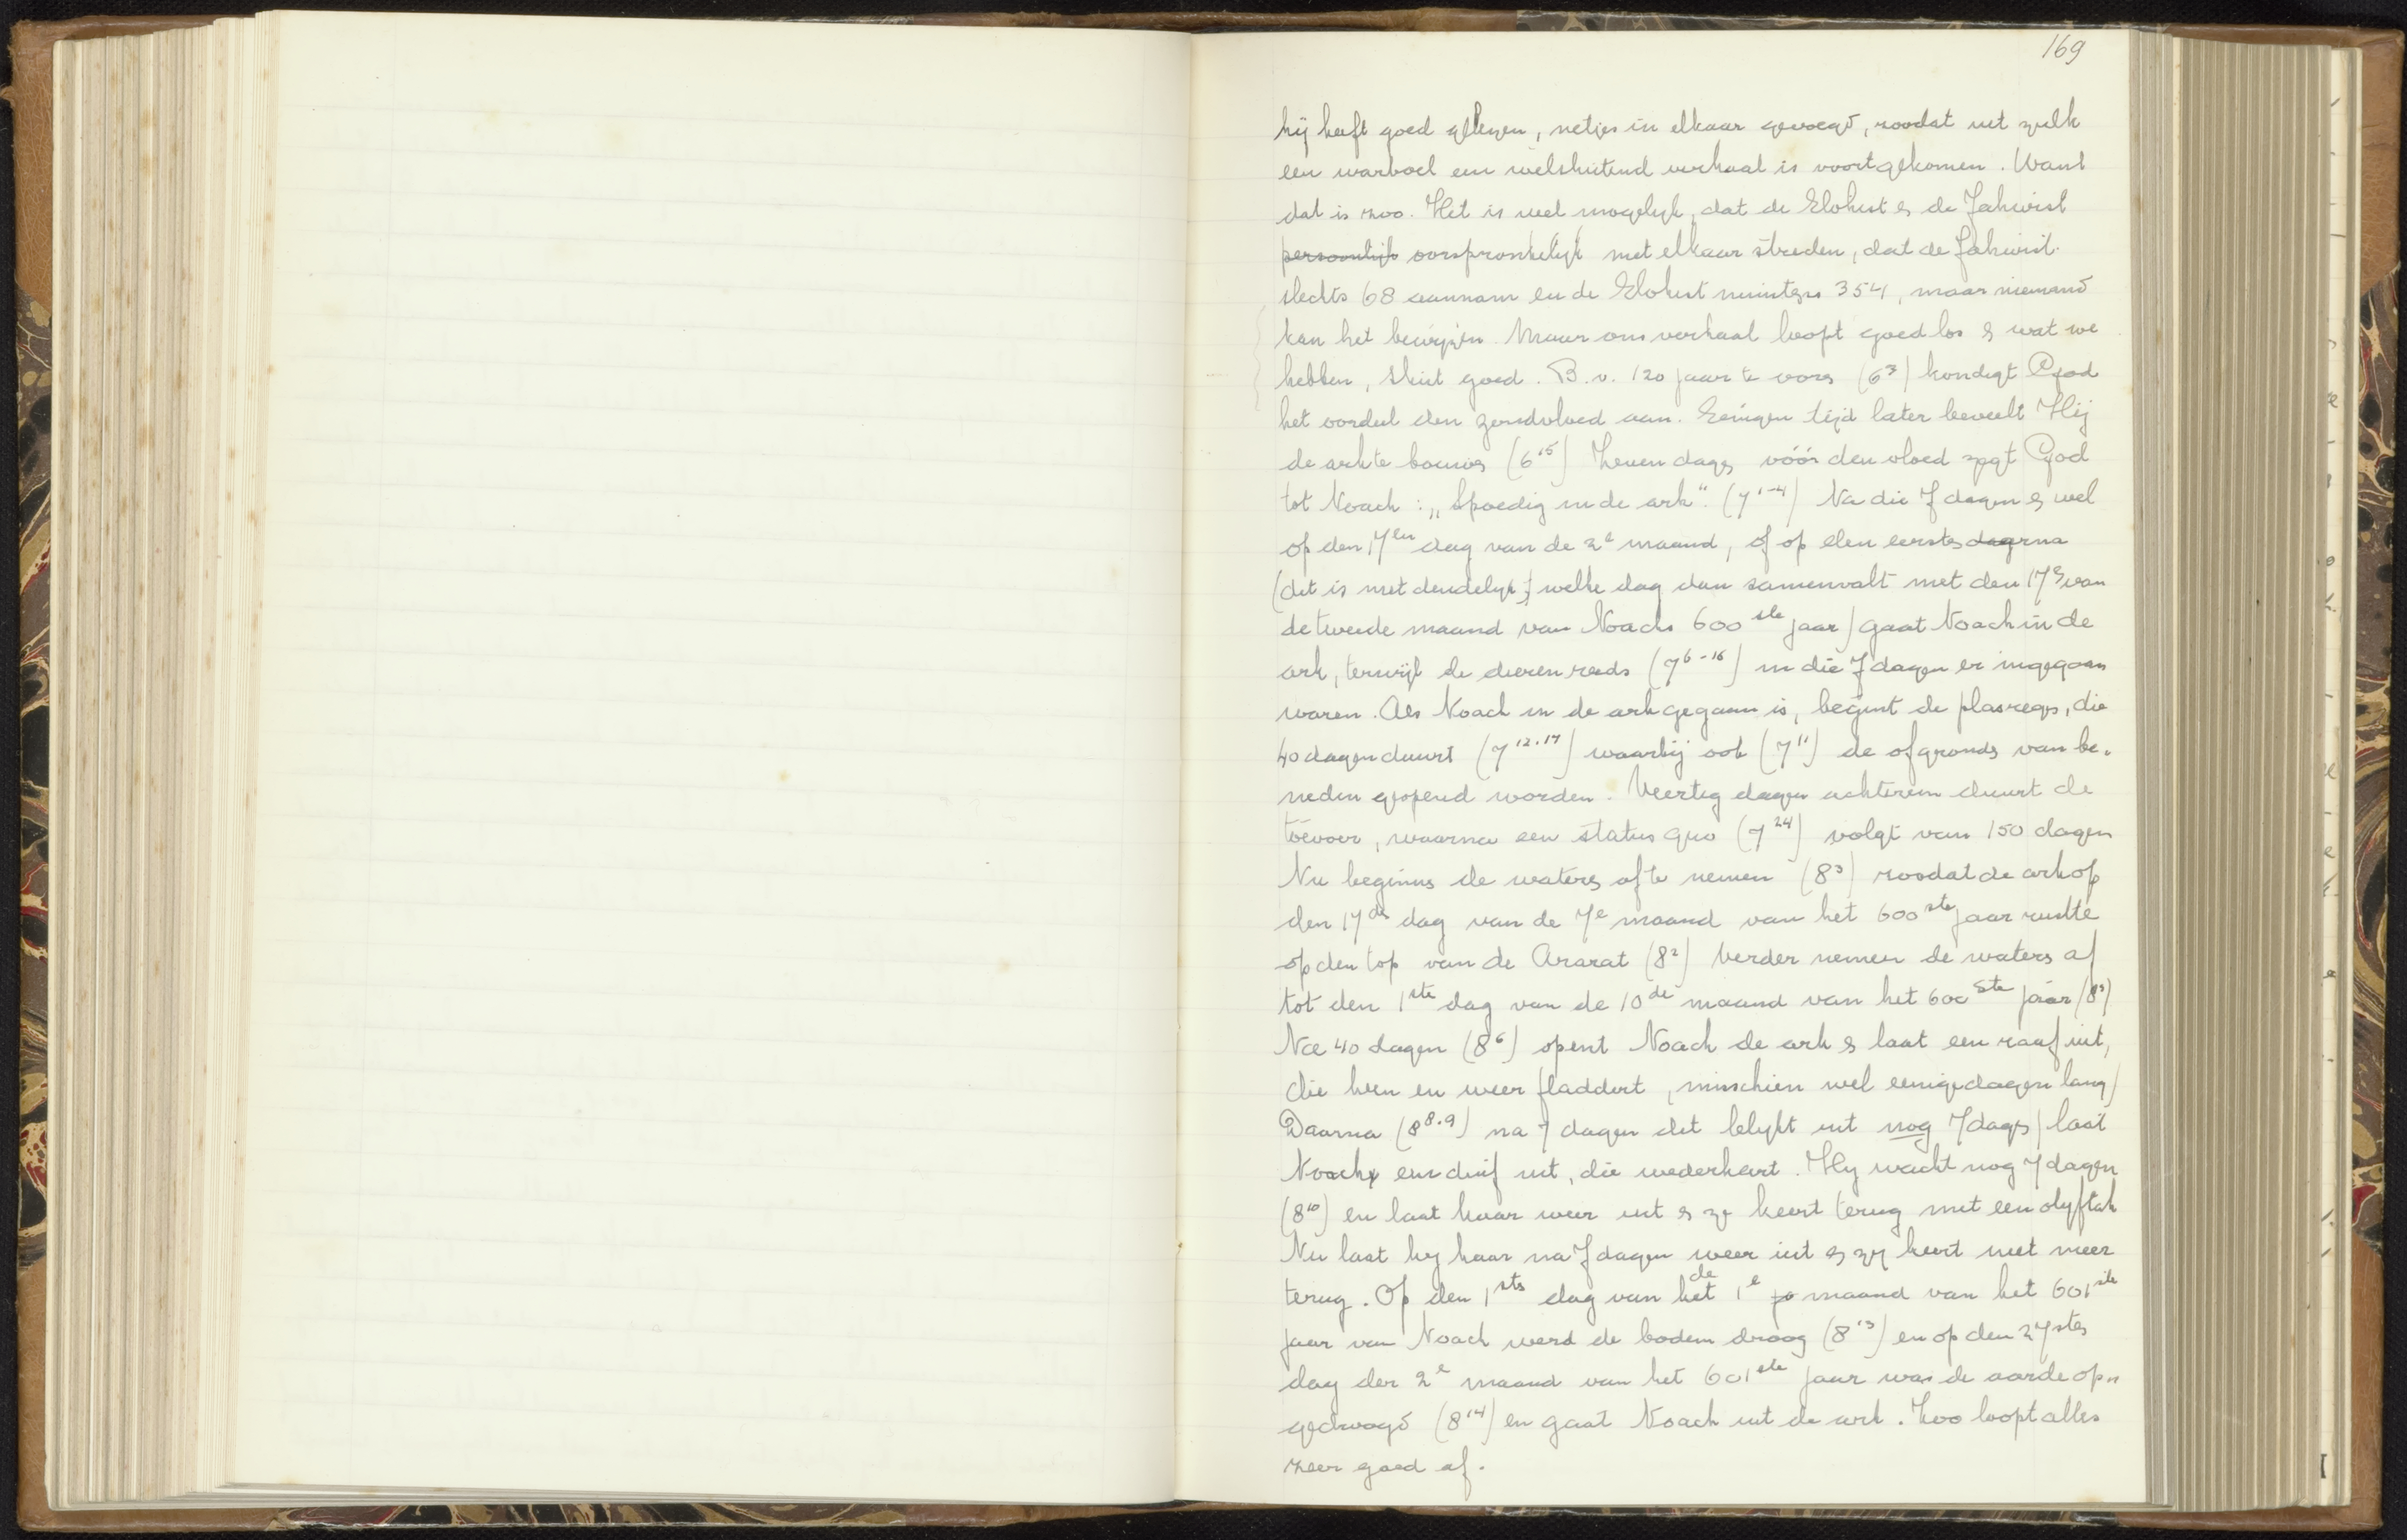 169
hij heeft goed gelezen, netjes in elkaar gevoegd, zoodat uit zulk
een warboel een welsluitend verhaal is voortgekomen. Want
dat is zoo. Het is wel mogelijk, dat de Elohist & de Jahwist
persoonlijk oorspronkelijk met elkaar streden, dat de Jahwist
slechts 68 aannam en de Elohist minstens 354, maar niemand
kan het bewijzen. Maar ons verhaal loopt goed los & wat we
hebben, sluit goed. B.v. 120 jaar te voren (6³) kondigt God
het oordeel den zondvloed aan. Eenigen tijd later beveelt Hij
de ark te bouwen (6¹⁵) Zeven dagen vóór den vloed zegt God
tot Noach: „Spoedig in de ark". (7¹⁻⁴) Na die 7 dagen & wel
op den 17en dag van de 2e maand, of op den eersten dag erna
(dit is niet duidelijk; welke dag dan samenvalt met den 17en van
de tweede maand van Noachs 600ste jaar) gaat Noach in de
ark, terwijl de dieren reeds (7⁶⁻¹⁶) in die 7 dagen er ingegaan
waren. Als Noach in de ark gegaan is, begint de plasregen, die
40 dagen duurt (7¹²·¹⁷) waarbij ook (7¹¹) de afgronds van be-
neden geopend worden. Veertig dagen achtereen duurt de
toevoer, waarna een status quo (7²⁴) volgt van 150 dagen
Nu beginnen de waters af te nemen (8³) zoodat de ark op
den 17den dag van de 7e maand van het 600ste jaar rustte
op den top van de Ararat (8²) Verder nemen de waters af
tot den 1ste dag van de 10de maand van het 600ste jaar (8⁵)
Na 40 dagen (8⁶) opent Noach de ark & laat een raaf uit,
die heen en weer fladdert, misschien wel eenige dagen lang)
Daarna (8⁸·⁹) na 7 dagen dit blijkt uit nog 7 dagen) laat
Noach een duif uit, die wederkeert. Hij wacht nog 7 dagen
(8¹⁰) en laat haar weer uit & ze keert terug met een olyftak
Nu laat hy haar na 7 dagen weer uit & zij keert niet meer
terug. Op den 1sten dag van het de 1e ja maand van het 601ste
jaar van Noach werd de bodem droog (8¹³) en op den 27sten
dag der 2e maand van het 601ste jaar was de aarde op-
gedroogd (8¹⁴) en gaat Noach uit de ark. Zoo loopt alles
zeer goed af.